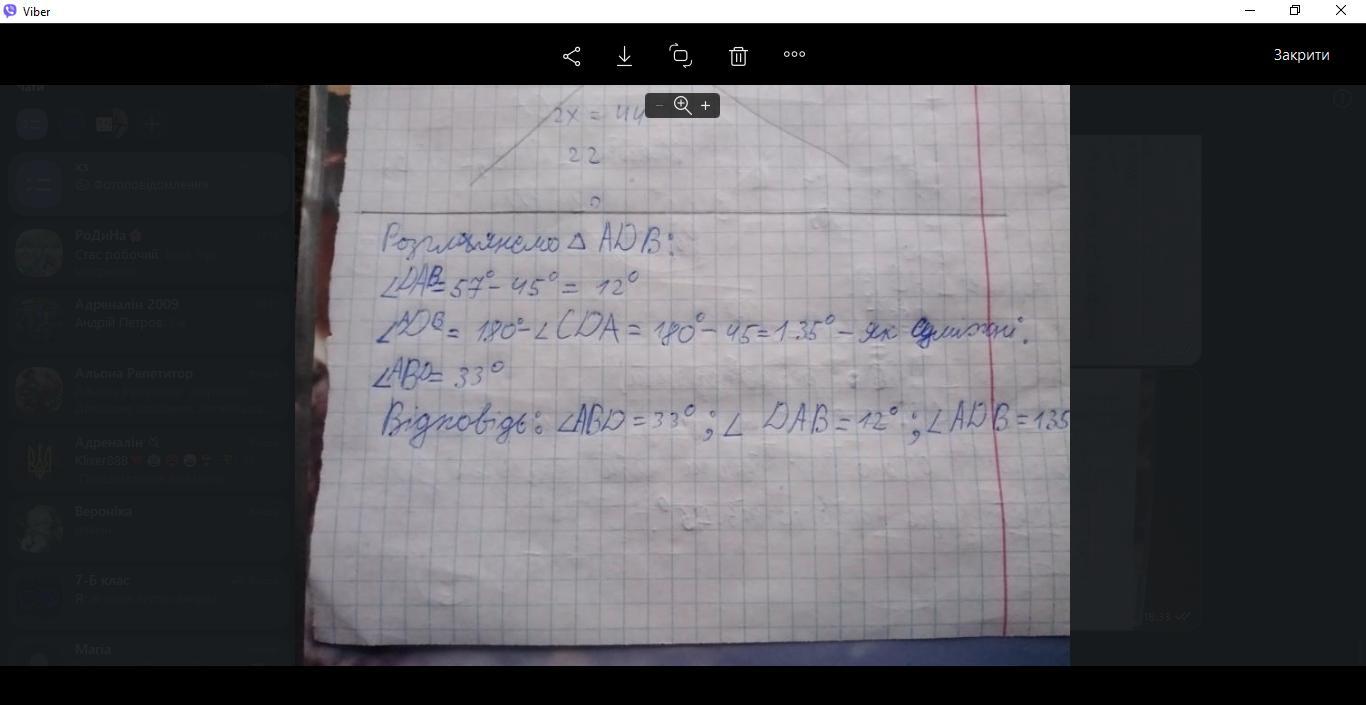 Viber
Закрити
Чати
xs
Фотоповідомлення
РоДиНа
Стас робочий
Адреналін 2009
Андрій Петров:
Альона Репетитор
Адреналін
Klixer888
Вероніка
7-Б клас
Я:
Maria
18:33
2x = 44
22
0
Розгляянемо Δ ADB:
∠DAB = 57° - 45° = 12°
∠ADB = 180° - ∠CDA = 180° - 45 = 135° - як суміжні.
∠ABD = 33°
Відповідь: ∠ABD = 33°; ∠ DAB = 12°; ∠ADB = 135